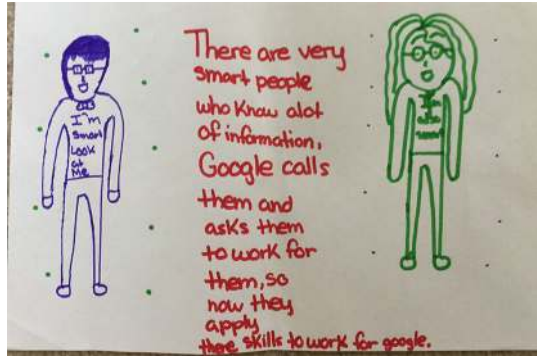 I'm
smart
Look
at
Me
There are very
smart people
who know alot
of information,
Google calls
them and
asks them
to work for
them, so
now they
apply
there skills to work for google.
I'm
also
smart